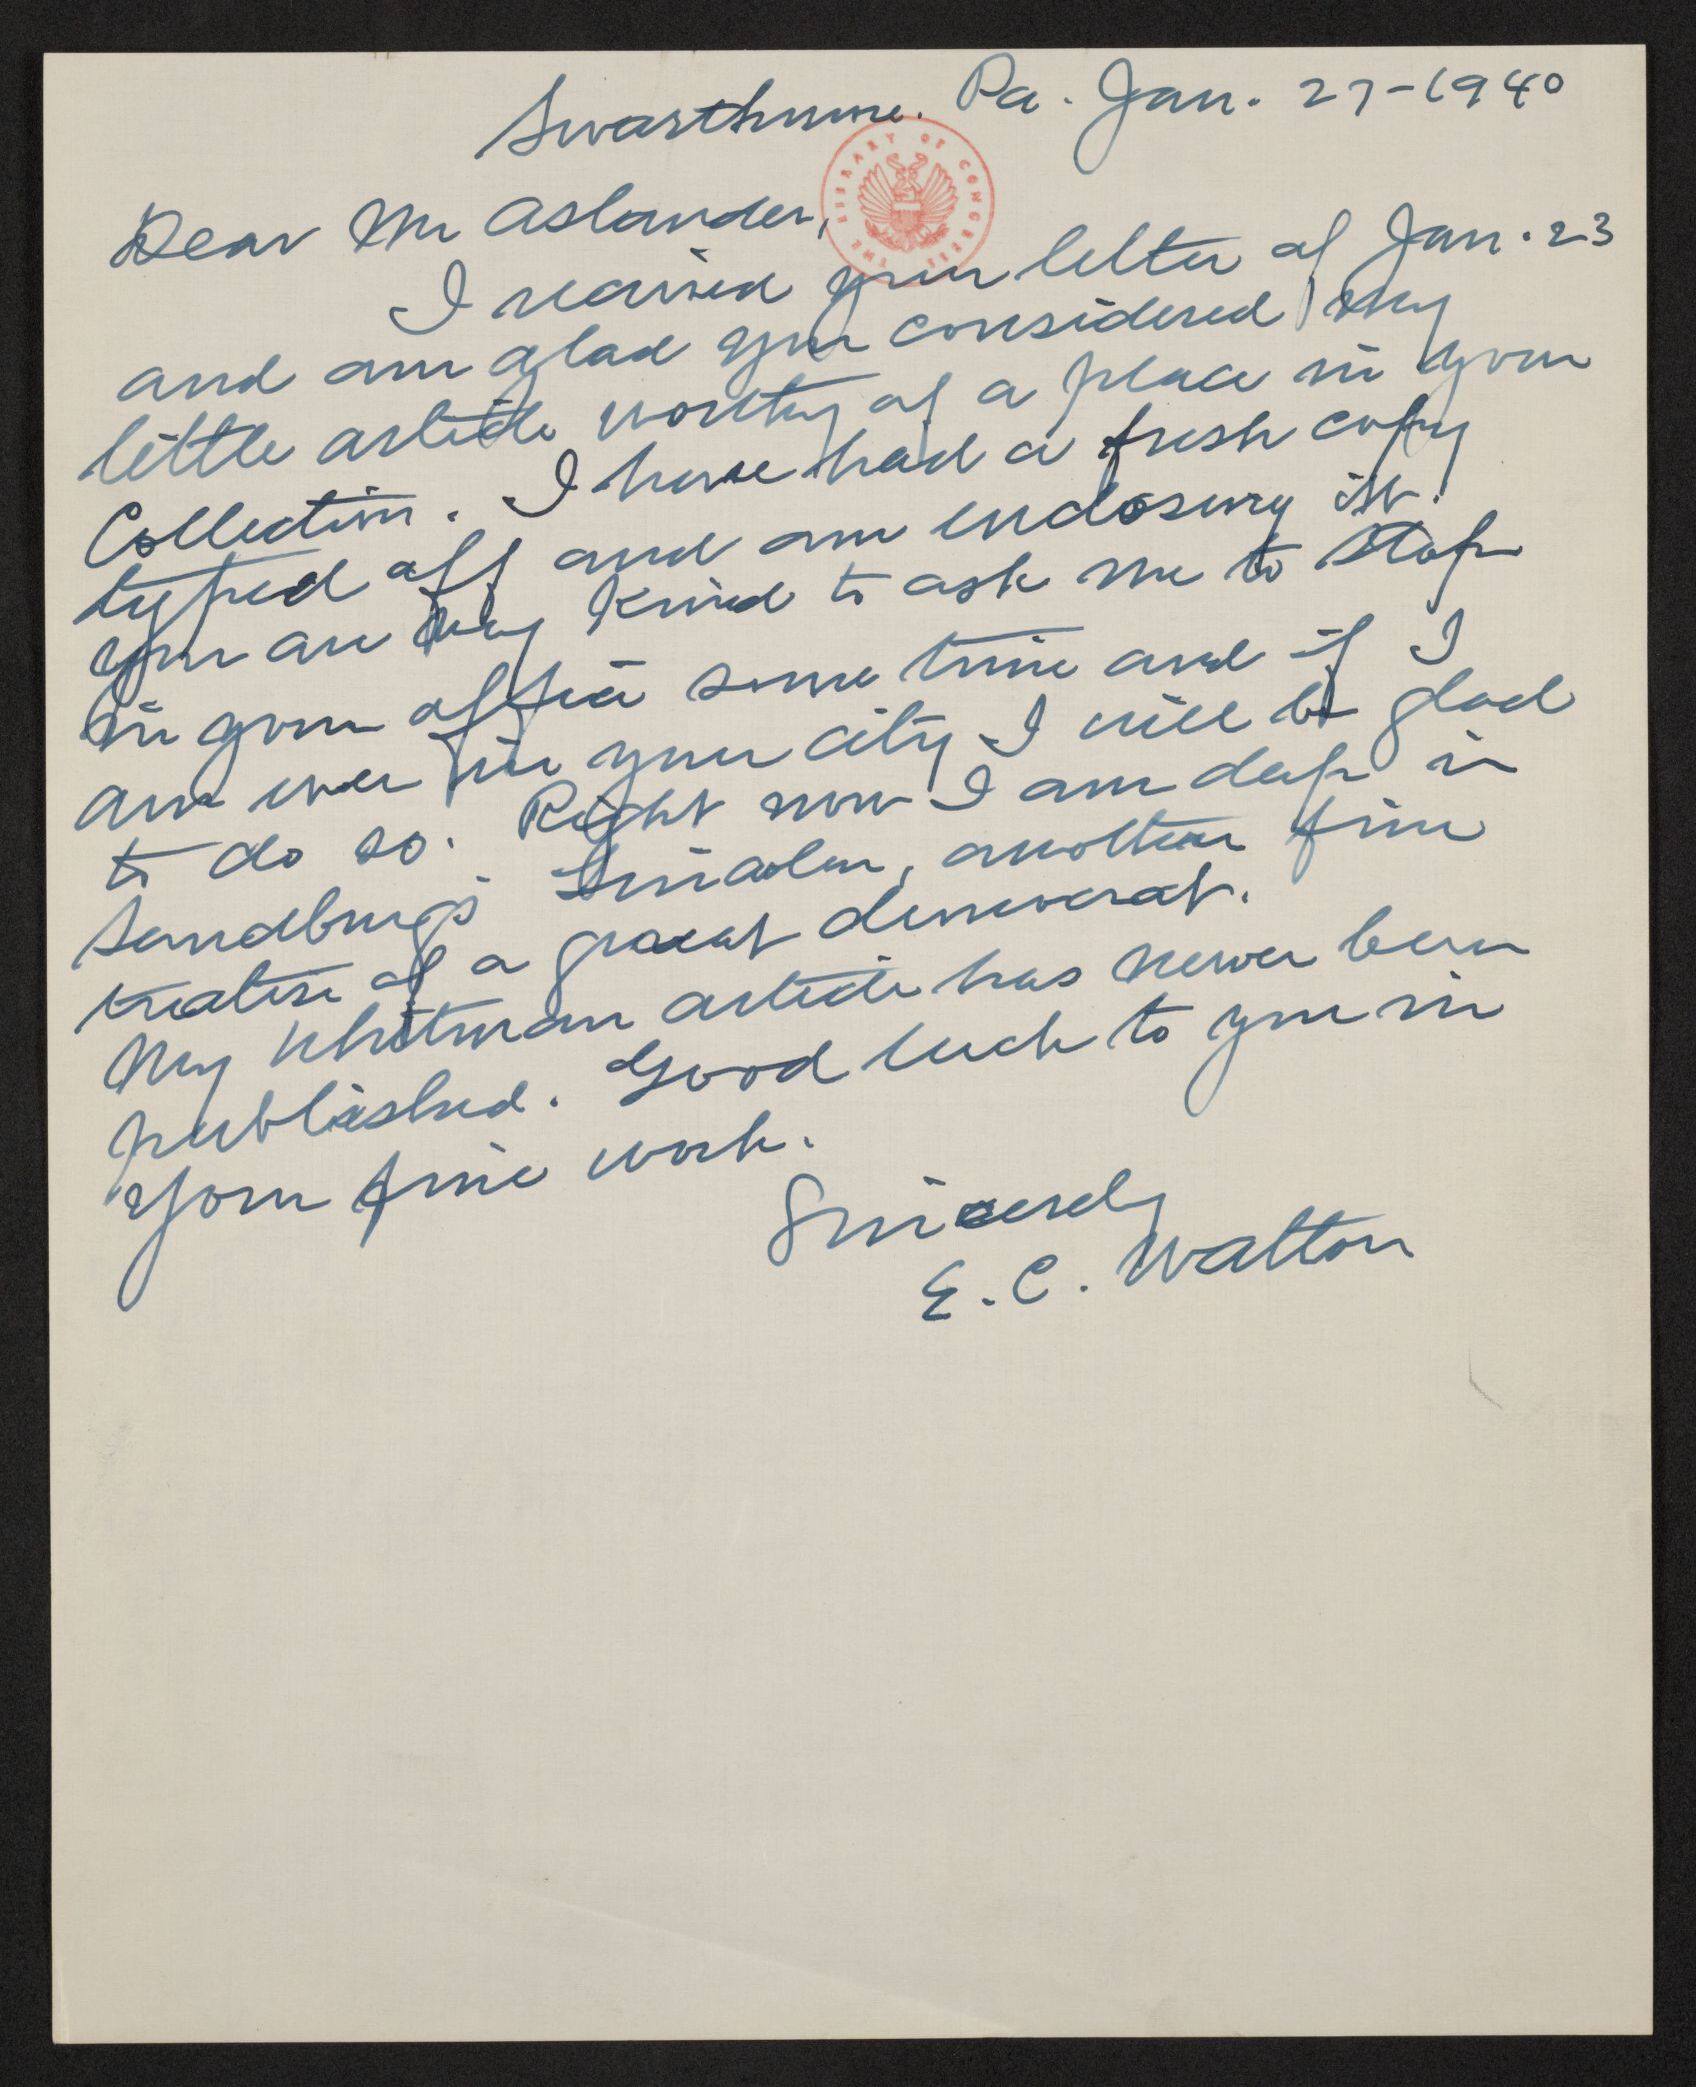 Swarthmore. Pa. Jan. 27-1940
THE LIBRARY OF CONGRESS
Dear Mr Aslander,
I received your letter of Jan. 23
and am glad you considered my
little article worthy of a place in your
Collection. I have had a fresh copy
typed off and am enclosing it.
You are very kind to ask me to stop
in your office some time and if I
am ever in your city I will be glad
to do so. Right now I am deep in
Sandburg's Lincoln, another fine
treatise of a great democrat.
My Whitman article has never been
published. Good luck to you in
your fine work.
Sincerely
E. C. Walton